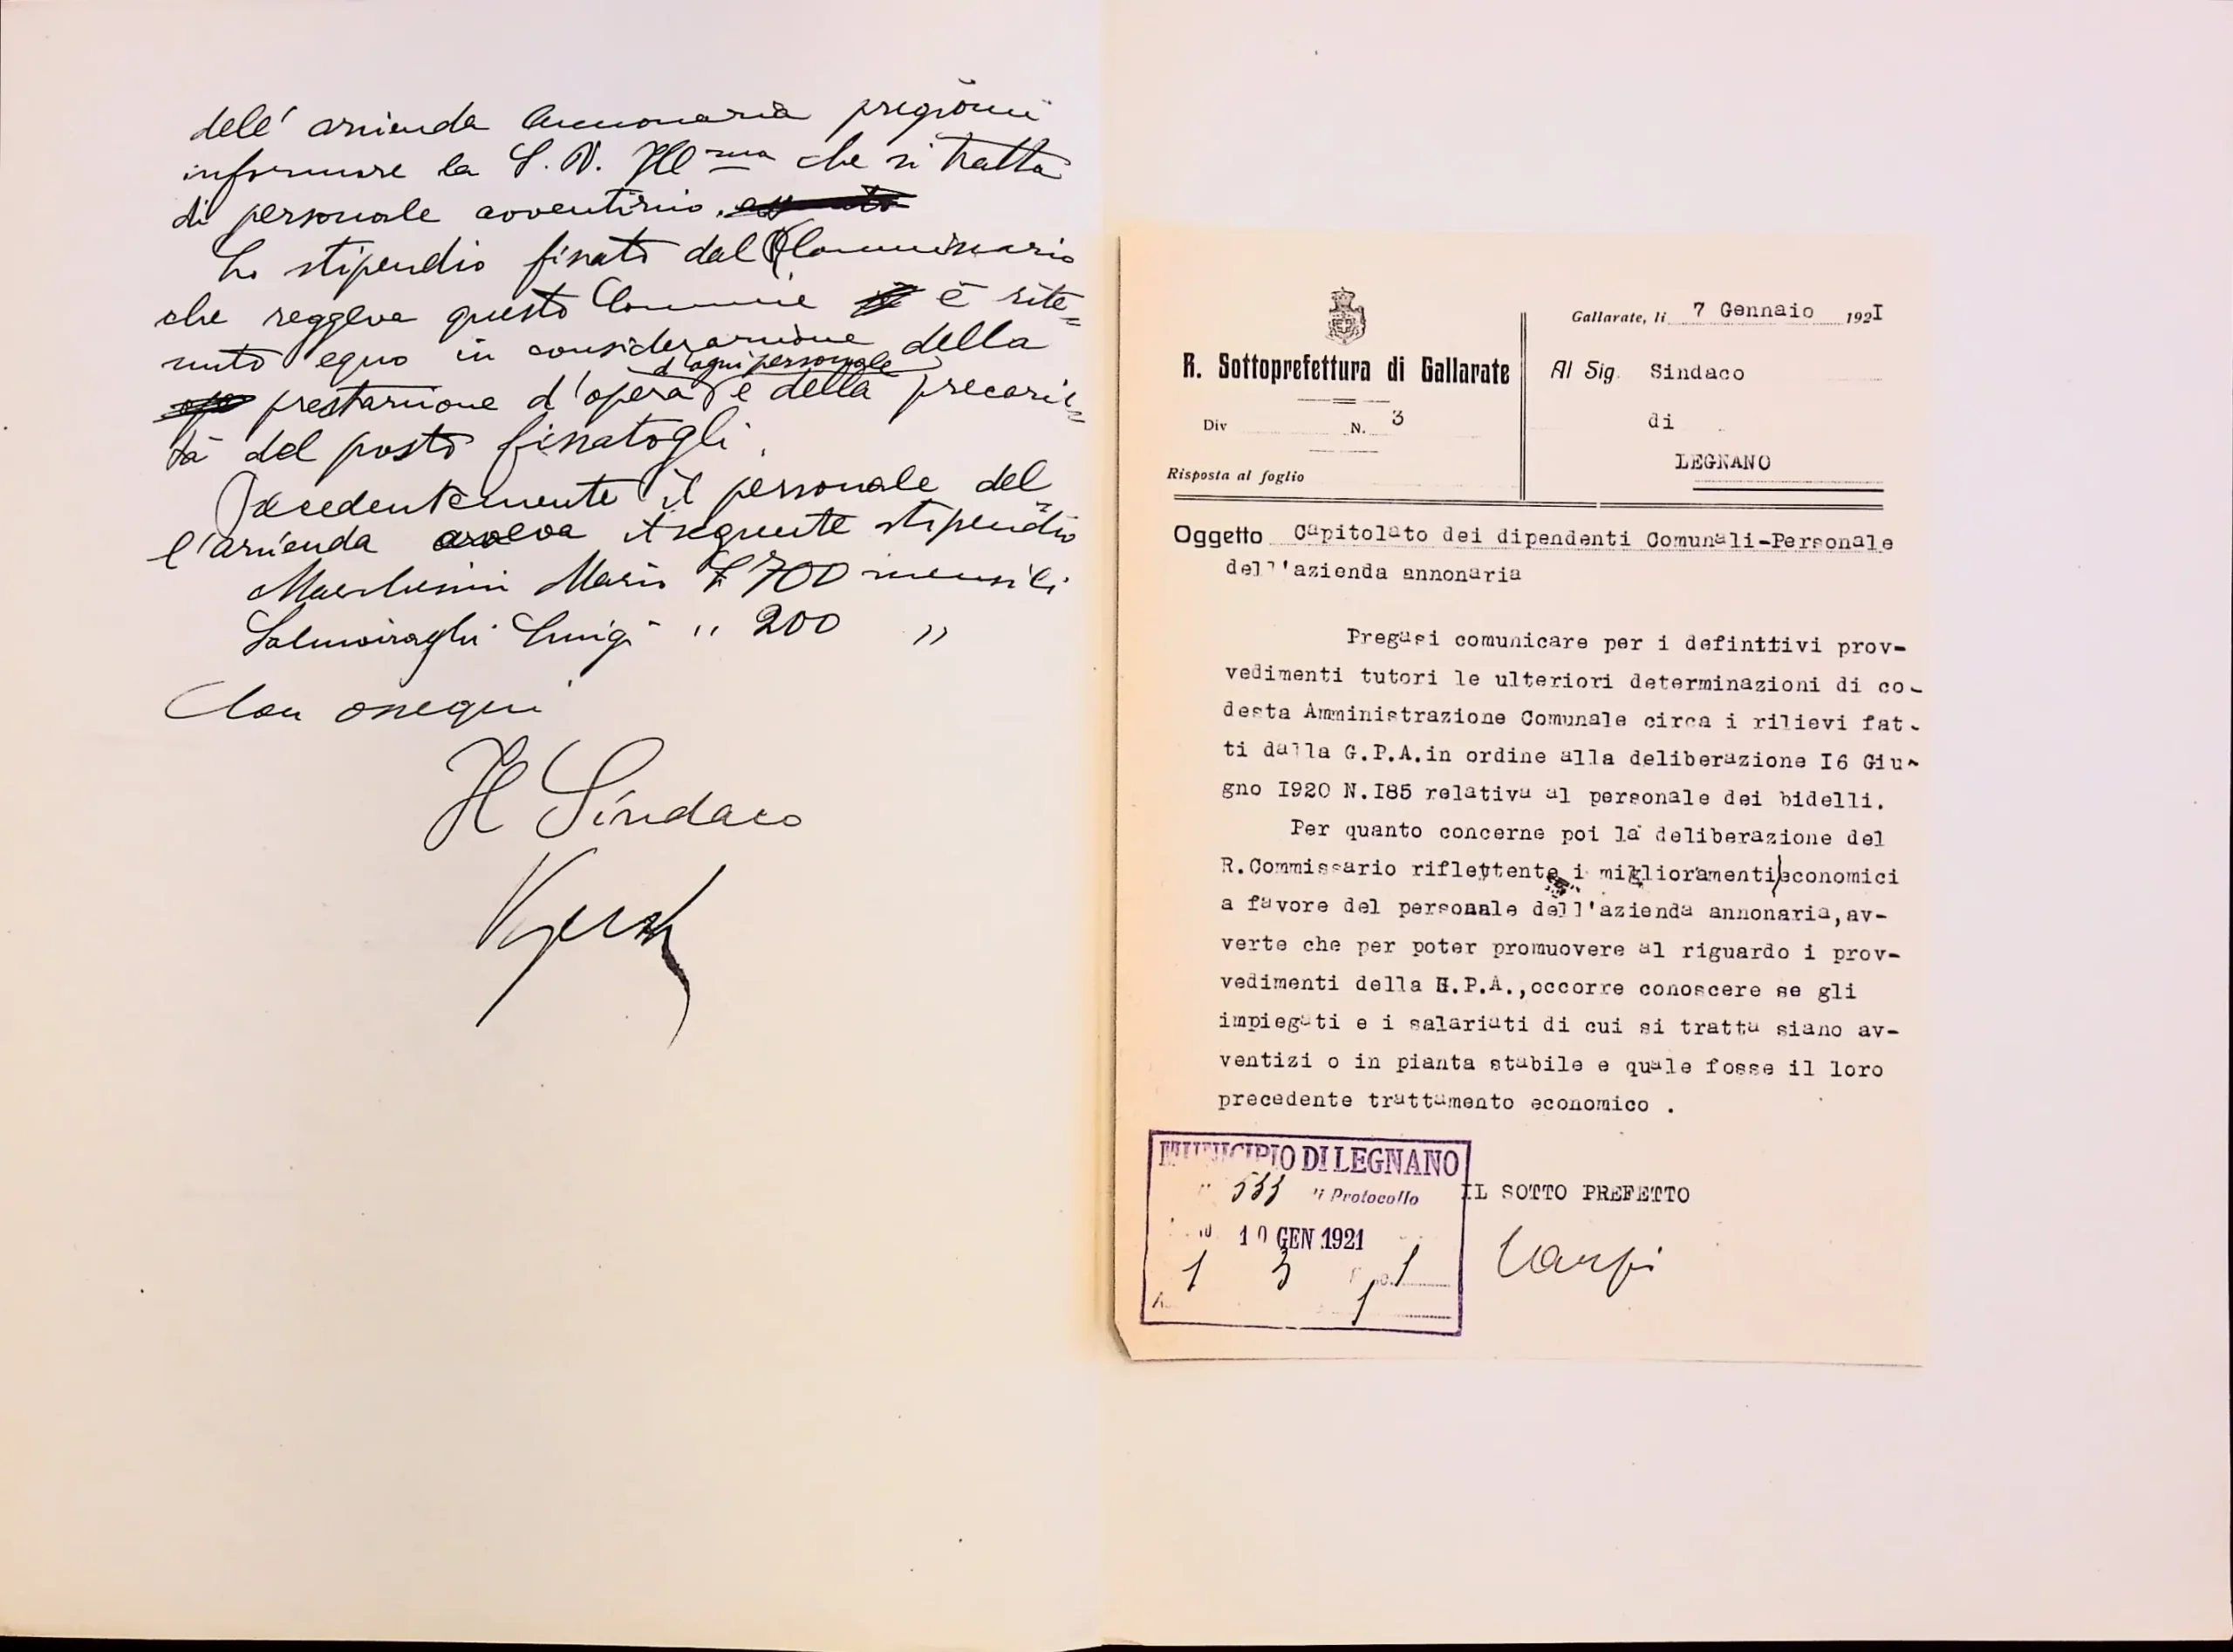 dell' azienda annonaria pregiomi
informare la S. V. Ill ma che si tratta
di personale avventizio.
Lo stipendio fissato dal Commissario
che reggeva questo Comune è rite=
nuto equo in considerazione della
d'ogni personale
prestazione d'opera e della precarie=
tà del posto fissatogli.
Precedentemente il personale del=
l'azienda aveva il seguente stipendio
Mario £ 700 mensili
Salmoiraghi Luigi " 200 "
Con ossequi
Il Sindaco
R. Sottoprefettura di Gallarate
Div N. 3
Risposta al foglio
Gallarate, li 7 Gennaio 192I
Al Sig. Sindaco
di
LEGNANO
Oggetto Capitolato dei dipendenti Comunali-Personale
dell'azienda annonaria
Pregasi comunicare per i definttivi prov-
vedimenti tutori le ulteriori determinazioni di co-
desta Amministrazione Comunale circa i rilievi fat-
ti dalla G.P.A.in ordine alla deliberazione I6 Giu-
gno I920 N.I85 relativa al personale dei bidelli.
Per quanto concerne poi la deliberazione del
R.Commissario riflettente i miglioramenti economici
a favore del personale dell'azienda annonaria,av-
verte che per poter promuovere al riguardo i prov-
vedimenti della G.P.A.,occorre conoscere se gli
impiegati e i salariati di cui si tratta siano av-
ventizi o in pianta stabile e quale fosse il loro
precedente trattamento economico .
IL SOTTO PREFETTO
MUNICIPIO DI LEGNANO
533 di Protocollo
10 GEN 1921
1 3 1
1